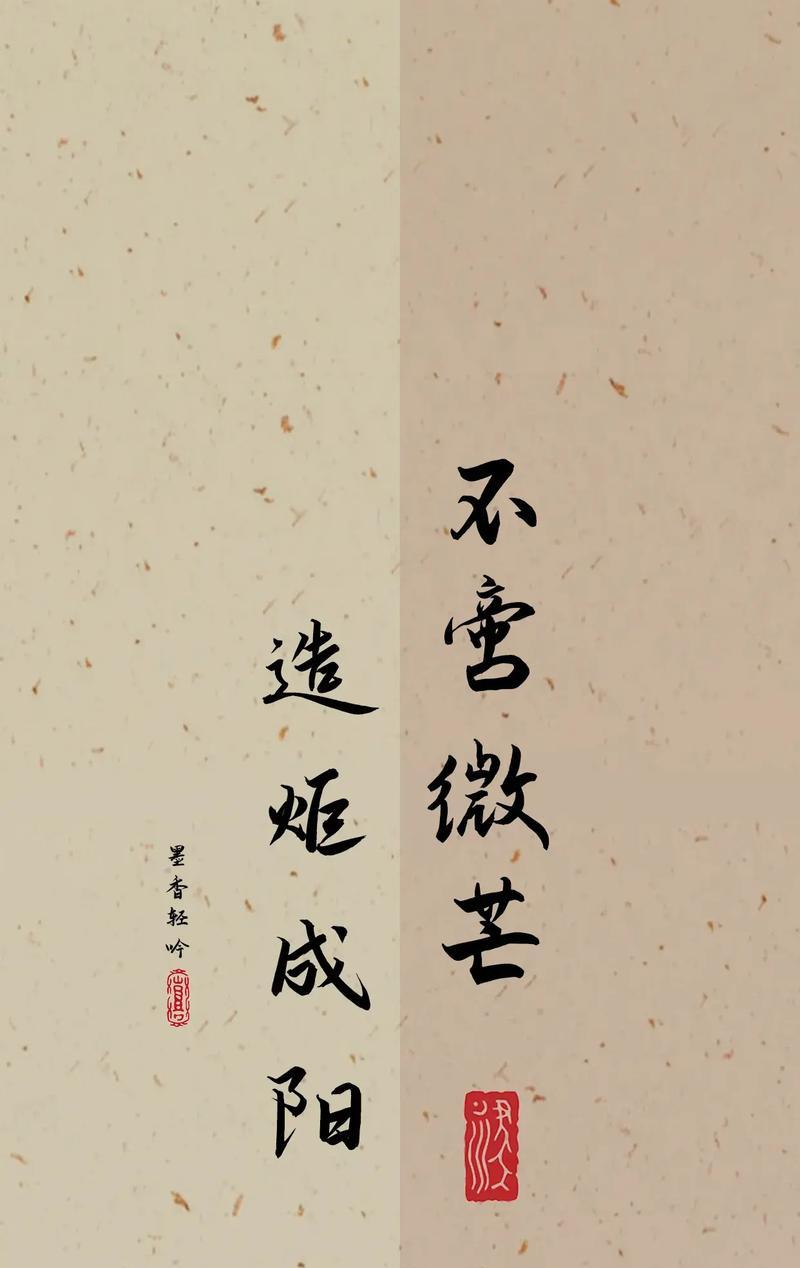 不啻微芒
造炬成阳
墨香轻吟